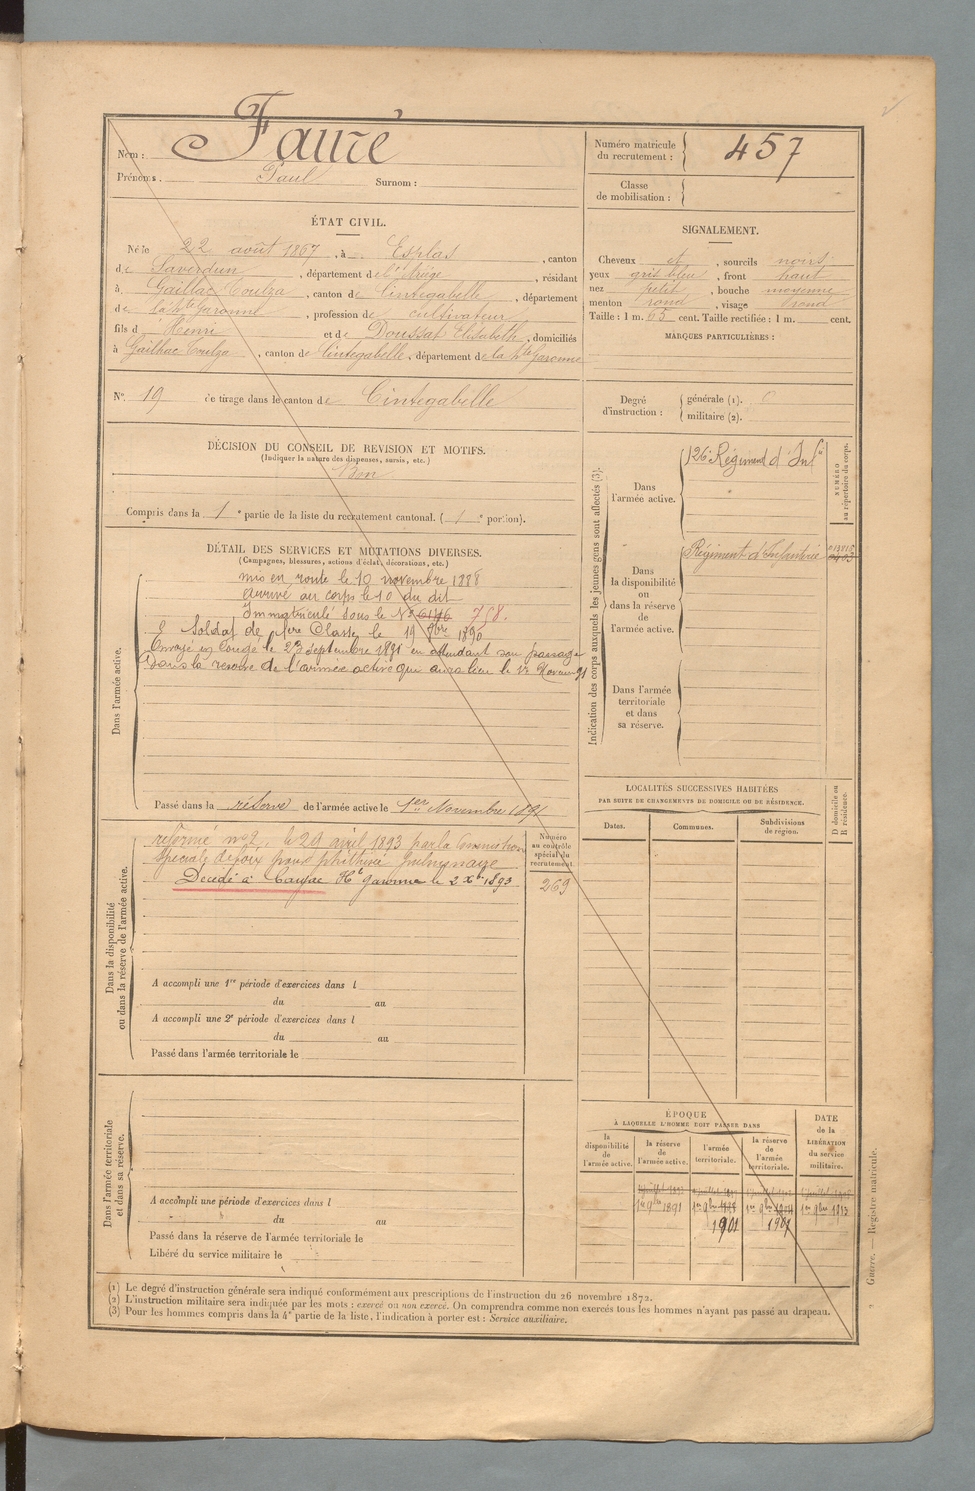 Nom : Fauré
Prénoms. Paul Surnom :
Numéro matricule du recrutement : 457
Classe de mobilisation :
ÉTAT CIVIL.
Né le 22 août 1867, à Esplas, canton
de Saverdun, département de l'Ariège, résidant
à Gaillac Toulza, canton de Cintegabelle, département
de la Hte Garonne, profession de cultivateur
fils d Henri et de Doussat Elisabeth, domiciliés
à Gailhac Toulza, canton de Cintegabelle, département de la Hte Garonne
No. 19 de tirage dans le canton de Cintegabelle
SIGNALEMENT.
Cheveux et, sourcils noirs
yeux gris bleu, front haut
nez petit, bouche moyenne
menton rond, visage rond
Taille : 1 m. 65 cent. Taille rectifiée : 1 m. cent.
MARQUES PARTICULIÈRES :
Degré d'instruction : générale (1). 0
militaire (2).
DÉCISION DU CONSEIL DE REVISION ET MOTIFS.
(Indiquer la nature des dispenses, sursis, etc.)
Bon
Compris dans la 1e partie de la liste du recrutement cantonal. (1e portion).
DÉTAIL DES SERVICES ET MUTATIONS DIVERSES.
(Campagnes, blessures, actions d'éclat, décorations, etc.)
Dans l'armée active.
mis en route le 10 novembre 1888
arrivé au corps le 10 du dit
Immatriculé sous le No 758.
Soldat de 1ère Classe le 19 8bre 1890
Envoyé en Congé le 23 septembre 1891 en attendant son passage
Dans la réserve de l'armée active qui aura lieu le 1er Novem 91
Passé dans la réserve de l'armée active le 1er Novembre 1891
Indication des corps auxquels les jeunes gens sont affectés (3).
Dans l'armée active.
126e Régiment d'Infie
NUMÉRO au répertoire du corps.
Dans la disponibilité ou dans la réserve de l'armée active.
Régiment d'Infanterie
Dans l'armée territoriale et dans sa réserve.
Dans la disponibilité ou dans la réserve de l'armée active.
réformé no 2, le 29 avril 1893 par la Commission
Spéciale de foix pour phthisie pulmonaire
Décédé à Caujac Hte garonne le 2 Xbre 1893
Numéro au contrôle spécial du recrutement
269
A accompli une 1re période d'exercices dans l
du au
A accompli une 2e période d'exercices dans l
du au
Passé dans l'armée territoriale le
LOCALITÉS SUCCESSIVES HABITÉES
PAR SUITE DE CHANGEMENTS DE DOMICILE OU DE RÉSIDENCE.
Dates. Communes. Subdivisions de région. D domicile ou R résidence.
Dans l'armée territoriale et dans sa réserve.
A accompli une période d'exercices dans l
du au
Passé dans la réserve de l'armée territoriale le
Libéré du service militaire le
ÉPOQUE
À LAQUELLE L'HOMME DOIT PASSER DANS
la disponibilité de l'armée active.
la réserve de l'armée active.
l'armée territoriale.
la réserve de l'armée territoriale.
DATE de la LIBÉRATION du service militaire.
1er 9bre 1891
1901
1907
1er 9bre 1913
(1) Le degré d'instruction générale sera indiqué conformément aux prescriptions de l'instruction du 26 novembre 1872.
(2) L'instruction militaire sera indiquée par les mots : exercé ou non exercé. On comprendra comme non exercés tous les hommes n'ayant pas passé au drapeau.
(3) Pour les hommes compris dans la 4e partie de la liste, l'indication à porter est : Service auxiliaire.
Guerre. — Registre matricule.